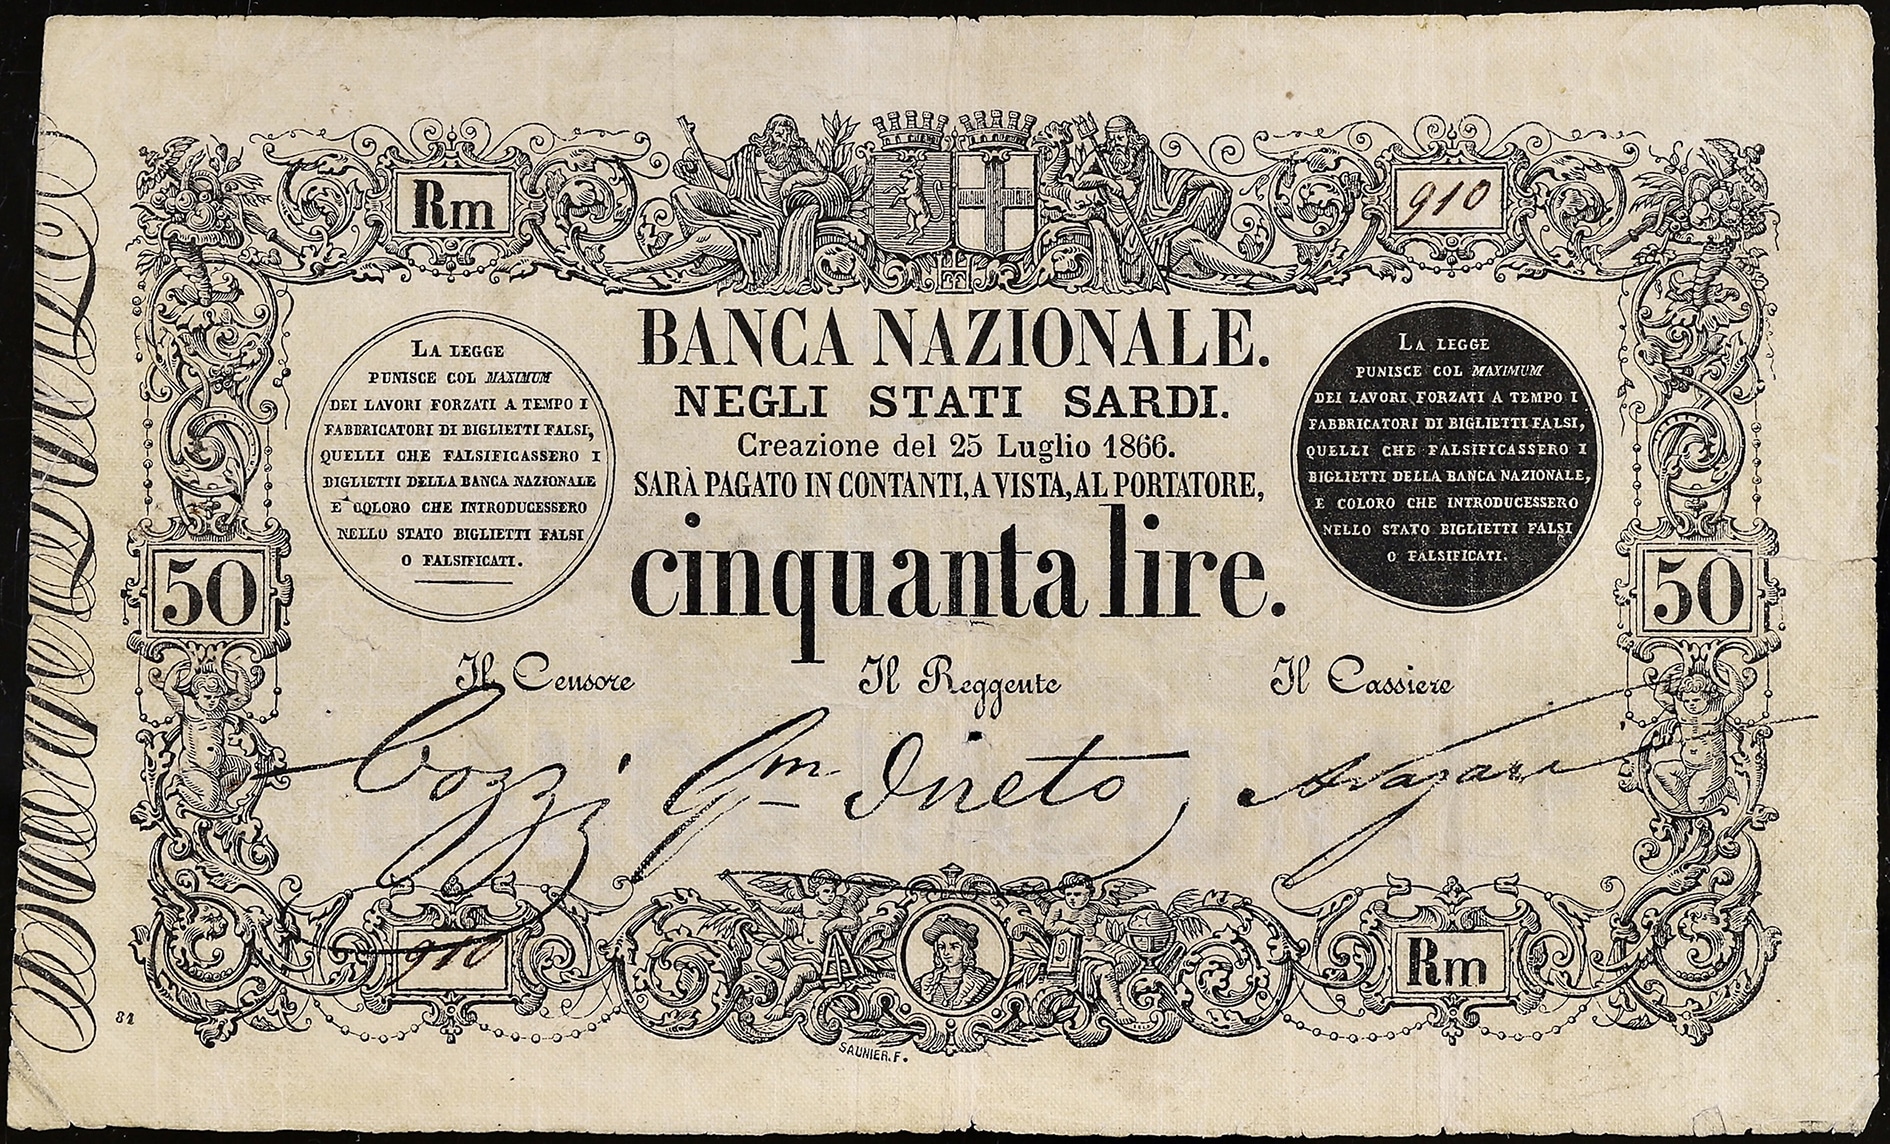 Rm
910
BANCA NAZIONALE.
NEGLI STATI SARDI.
Creazione del 25 Luglio 1866.
SARÀ PAGATO IN CONTANTI, A VISTA, AL PORTATORE,
cinquanta lire.
LA LEGGE
PUNISCE COL MAXIMUM
DEI LAVORI FORZATI A TEMPO I
FABBRICATORI DI BIGLIETTI FALSI,
QUELLI CHE FALSIFICASSERO I
BIGLIETTI DELLA BANCA NAZIONALE
E COLORO CHE INTRODUCESSERO
NELLO STATO BIGLIETTI FALSI
O FALSIFICATI.
LA LEGGE
PUNISCE COL MAXIMUM
DEI LAVORI FORZATI A TEMPO I
FABBRICATORI DI BIGLIETTI FALSI,
QUELLI CHE FALSIFICASSERO I
BIGLIETTI DELLA BANCA NAZIONALE,
E COLORO CHE INTRODUCESSERO
NELLO STATO BIGLIETTI FALSI
O FALSIFICATI.
50
50
Il Censore
Il Reggente
Il Cassiere
910
Rm
81
SAUNIER. F.